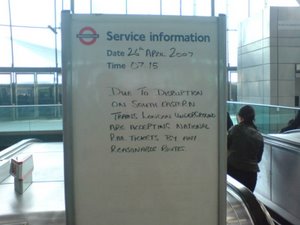 Service information
Date 26th APRIL 2007
Time 07.15
DUE TO DISRUPTION
ON SOUTH EASTERN
TRAINS LONDON UNDERGROUND
ARE ACCEPTING NATIONAL
RAIL TICKETS BY ANY
REASONABLE ROUTE.